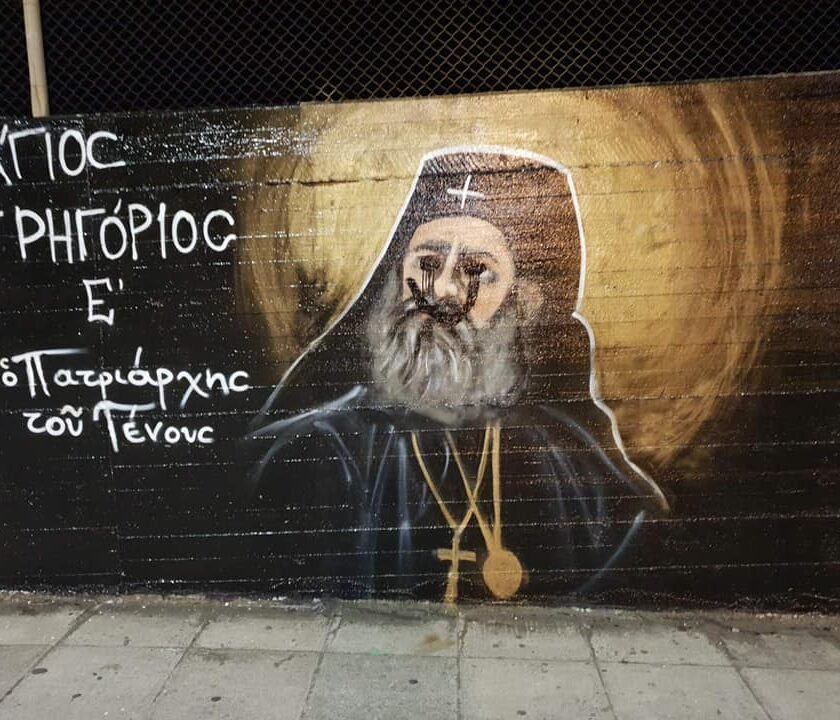 ἍΓΙΟς
ΓΡΗΓΌΡΙΟς
Ε'
ὁ Πατριάρχης
τοῦ Γένους